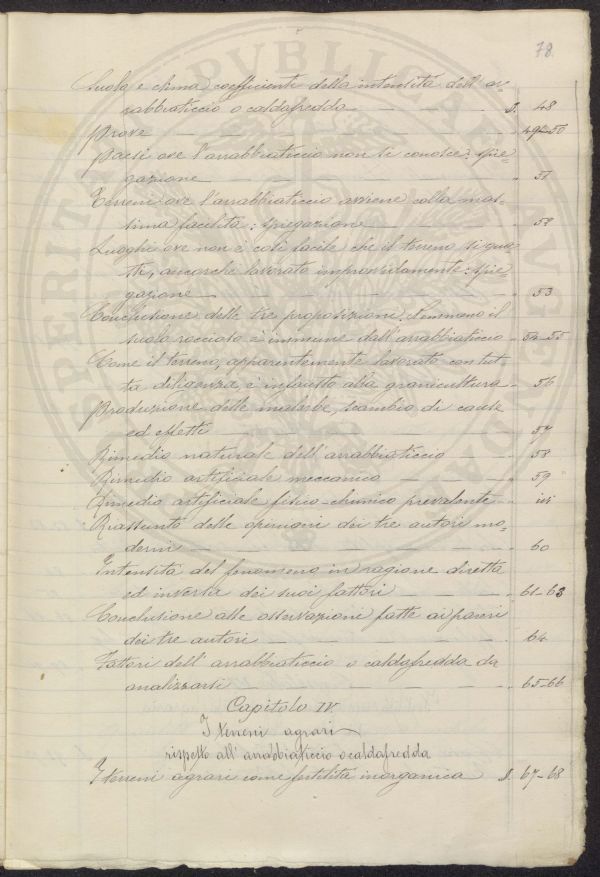 78
Suolo e clima coefficienti della intensità dell'ar
rabbiaticcio o caldafredda — — — §. 48
Prove — — — — — " 49-50
Paesi ove l'arrabbiaticcio non si conosce: spie-
gazione — — — — — " 51
Terreni ove l'arrabbiaticcio avviene colla mas-
sima facilità: spiegazione — — — " 52
Luoghi ove non è così facile che il terreno si gua-
sti, ancorchè lavorato improvvidamente: spie-
gazione — — — — — " 53
Conclusione delle tre proposizioni. Nemmeno il
suolo roccioso è immune dall'arrabbiaticcio " 54-55
Come il terreno, apparentemente lavorato con tut-
ta diligenza, è infausto alla granicultura " 56
Produzione delle malerbe, scambio di cause
ed effetti — — — — — " 57
Rimedio naturale dell'arrabbiaticcio — " 58
Rimedio artificiale meccanico — — " 59
Rimedio artificiale fisico-chimico prevalente " ivi
Riassunto delle opinioni dei tre autori mo-
derni — — — — — " 60
Intensità del fenomeno in ragione diretta
ed inversa dei suoi fattori — — — " 61-63
Conclusione alle osservazioni fatte ai pareri
dei tre autori — — — — — " 64
Fattori dell'arrabbiaticcio o caldafredda da
analizzarsi — — — — — " 65-66
Capitolo IV.
I terreni agrari
rispetto all'arrabbiaticcio o caldafredda
I terreni agrari come fertilità inorganica §. 67-68
PERITA PVBLICAE AVGENDAE